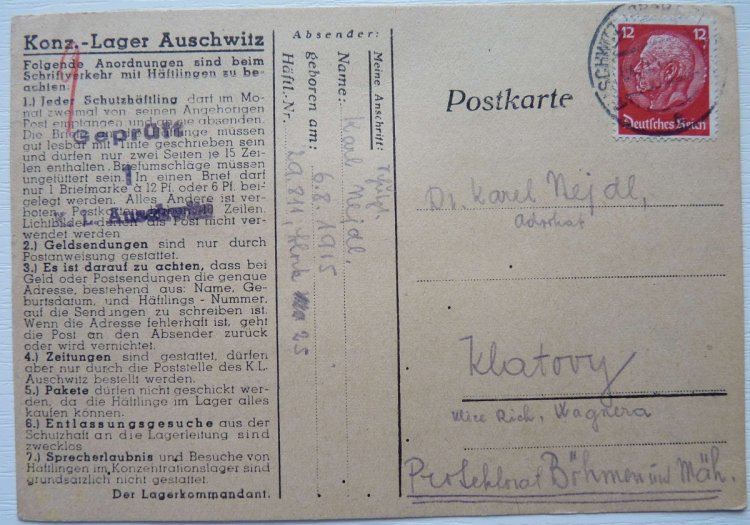 Konz.-Lager Auschwitz
Folgende Anordnungen sind beim
Schriftverkehr mit Häftlingen zu be-
achten:
1.) Jeder Schutzhäftling darf im Mo-
nat zweimal von seinen Angehörigen
Post empfangen und an sie absenden.
Die Briefe an Häftlinge müssen
gut lesbar mit Tinte geschrieben sein
und dürfen nur zwei Seiten je 15 Zei-
len enthalten. Briefumschläge müssen
ungefüttert sein. In einen Brief darf
nur 1 Briefmarke à 12 Pf. oder 6 Pf. bei-
gelegt werden. Alles Andere ist ver-
boten. Postkarten Zeilen.
Lichtbilder dürfen als Post nicht ver-
wendet werden
2.) Geldsendungen sind nur durch
Postanweisung gestattet.
3.) Es ist darauf zu achten, dass bei
Geld oder Postsendungen die genaue
Adresse, bestehend aus: Name, Ge-
burtsdatum, und Häftlings - Nummer,
auf die Sendungen zu schreiben ist.
Wenn die Adresse fehlerhaft ist, geht
die Post an den Absender zurück
oder wird vernichtet.
4.) Zeitungen sind gestattet, dürfen
aber nur durch die Poststelle des K.L.
Auschwitz bestellt werden.
5.) Pakete dürfen nicht geschickt wer-
den, da die Häftlinge im Lager alles
kaufen können.
6.) Entlassungsgesuche aus der
Schutzhaft an die Lagerleitung sind
zwecklos
7.) Sprecherlaubnis und Besuche von
Häftlingen im Konzentrationslager sind
grundsätzlich nicht gestattet.
Der Lagerkommandant.
Geprüft
1
K. L. Auschwitz
Absender:
Meine Anschrift:
Name: Karl Nejdl,
geboren am: 6.8.1915
Häftl.-Nr. 29.811, 25
Postkarte
12 12
Deutsches Reich
SCHWITZ
Dr. Karel Nejdl,
advokat
Klatovy
ulice Rich. Wagnera
Protektorat Böhmen und Mäh.